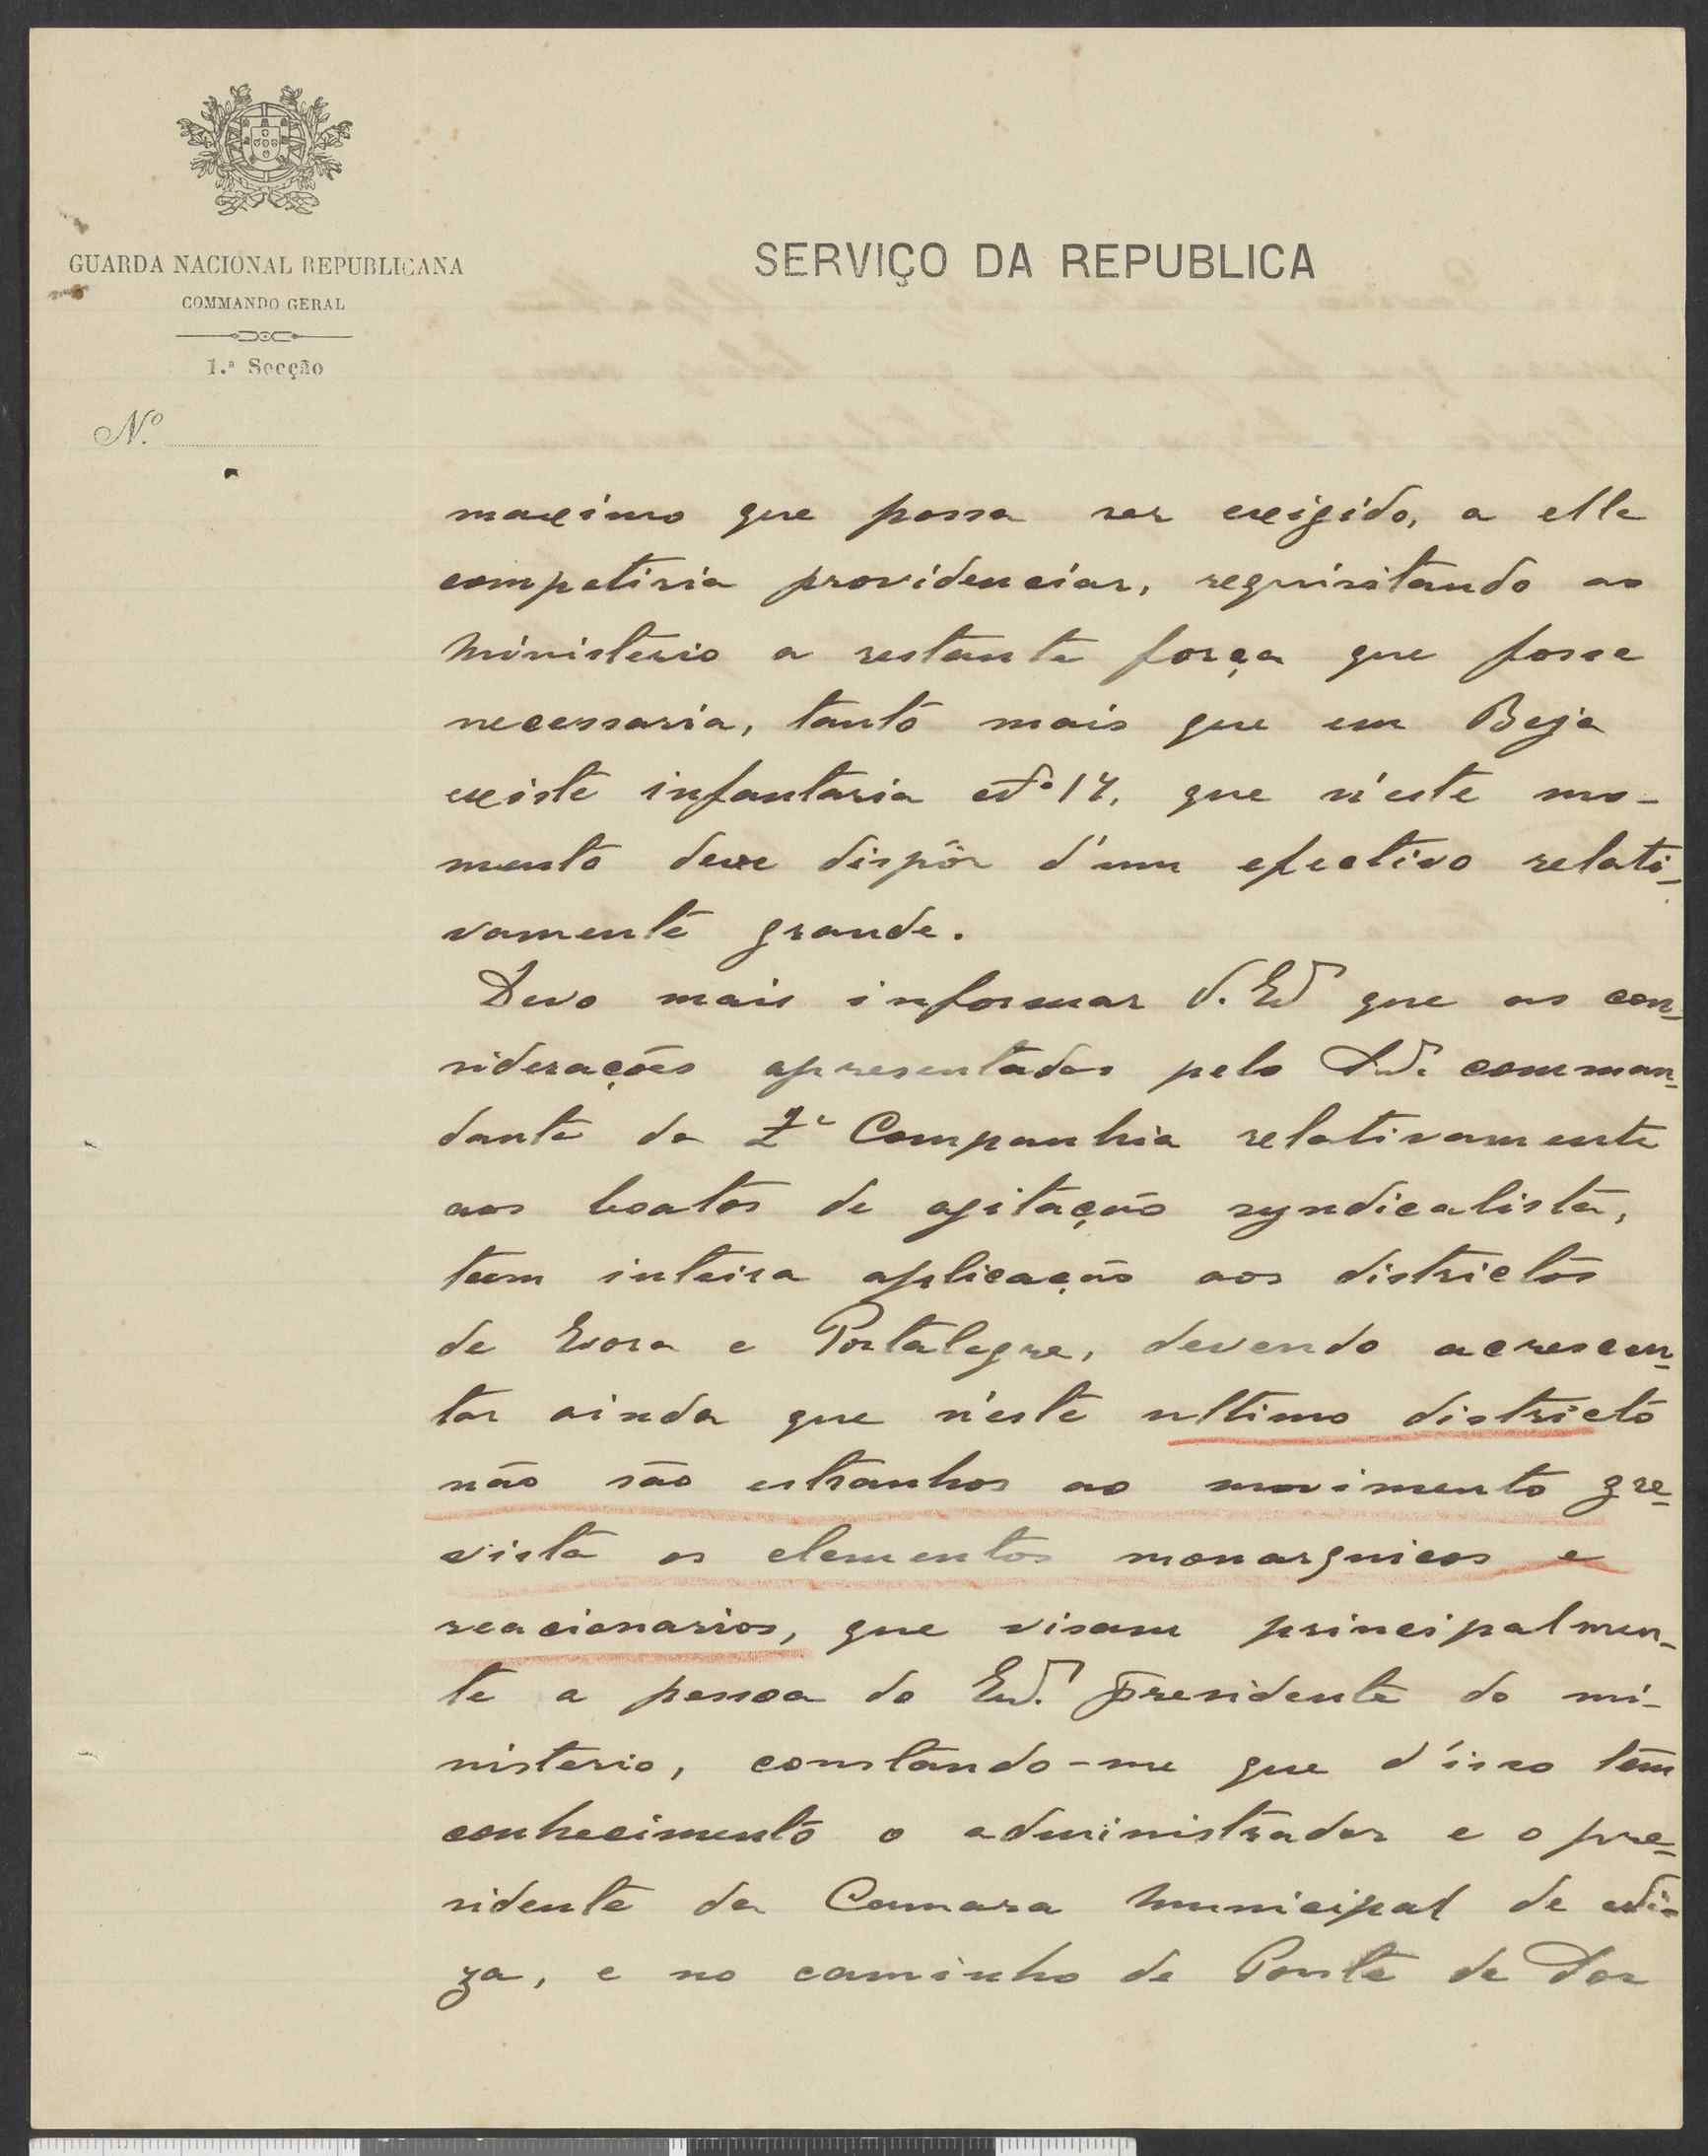 GUARDA NACIONAL REPUBLICANA
COMMANDO GERAL
1.ª Secção
N.º
SERVIÇO DA REPUBLICA
maximo que possa ser exigido, a elle
competiria providenciar, requisitando ao
ministerio a restante força que fosse
necessaria, tanto mais que em Beja
existe infantaria nº 17, que n'este mo-
mento deve dispôr d'um efectivo relati-
vamente grande.
Devo mais informar V. Exª que as con-
siderações apresentadas pelo commman-
dante da 2ª Companhia relativamente
aos boatos de agitação syndicalista,
teem inteira aplicação aos districtos
de Evora e Portalegre, devendo acrescen-
tar ainda que n'este ultimo districto
não são estranhos ao movimento gre-
vista os elementos monarquicos e
reacionarios, que visam principalmen-
te a pessoa do Exmº Presidente do mi-
nisterio, constando-me que d'isso têm
conhecimento o administrador e o pre-
sidente da Camara Municipal de Ni-
za, e no caminho de Ponte de Sor